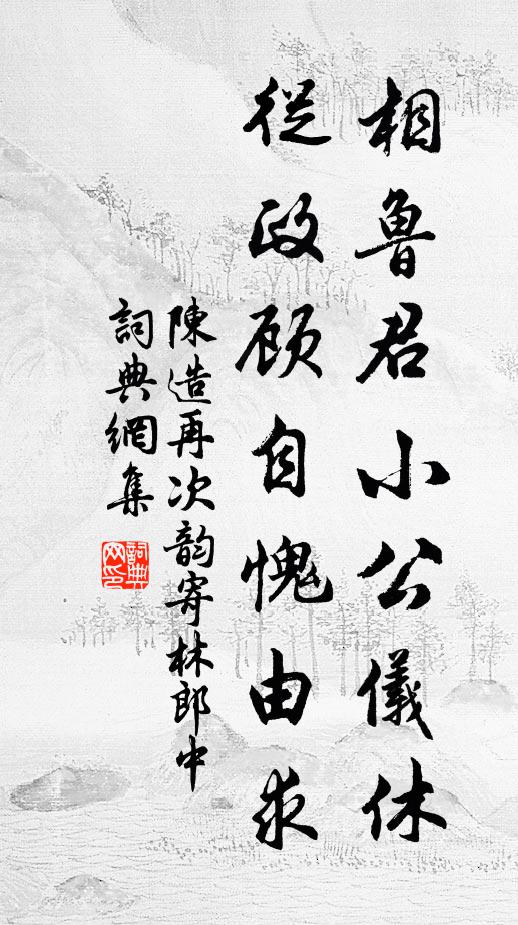 相魯君小公儀休
從政顾自愧由求
陳造再次韵寄林郎中
詞典網集
詞典网印